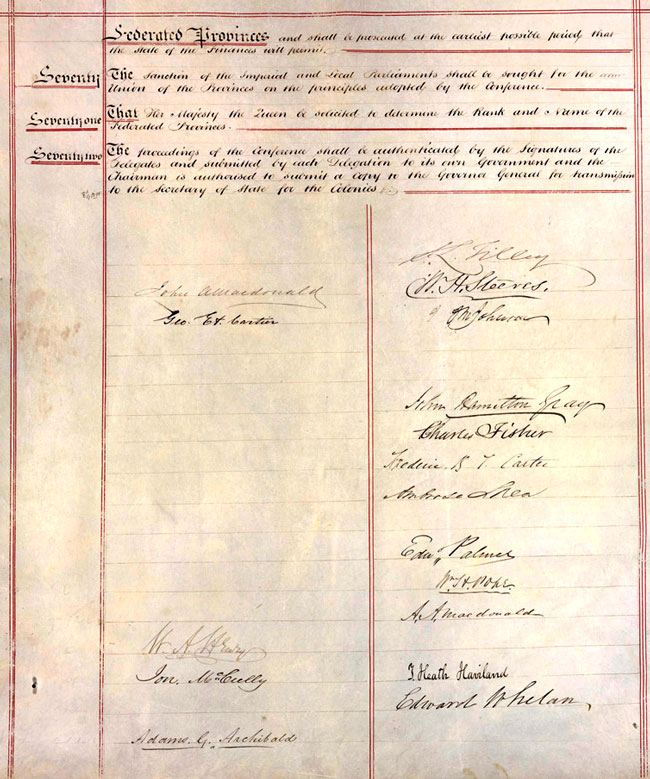 Federated Provinces and shall be prosecuted at the earliest possible period that
the state of the Finances will permit.
Seventy The Sanction of the Imperial and Local Parliaments shall be sought for the
Union of the Provinces on the principles adopted by the Conference.
Seventy one That Her Majesty the Queen be solicited to determine the Rank and Name of the
Federated Provinces.
Seventy two The proceedings of the Conference shall be authenticated by the Signatures of the
Delegates and submitted by each Delegation to its own Government and the
Chairman is authorised to submit a Copy to the Governor General for transmission
to the Secretary of State for the Colonies
John A Macdonald
Geo. Et. Cartier
W A Henry
Jon. McCully
Adams. G. Archibald
S. L. Tilley
W. H. Steeves.
J M Johnson
John Hamilton Gray
Charles Fisher
Frederic B T Carter
Ambrose Shea
Edw. Palmer
Wm H. Pope.
A. A. Macdonald
T. Heath Haviland
Edward Whelan,